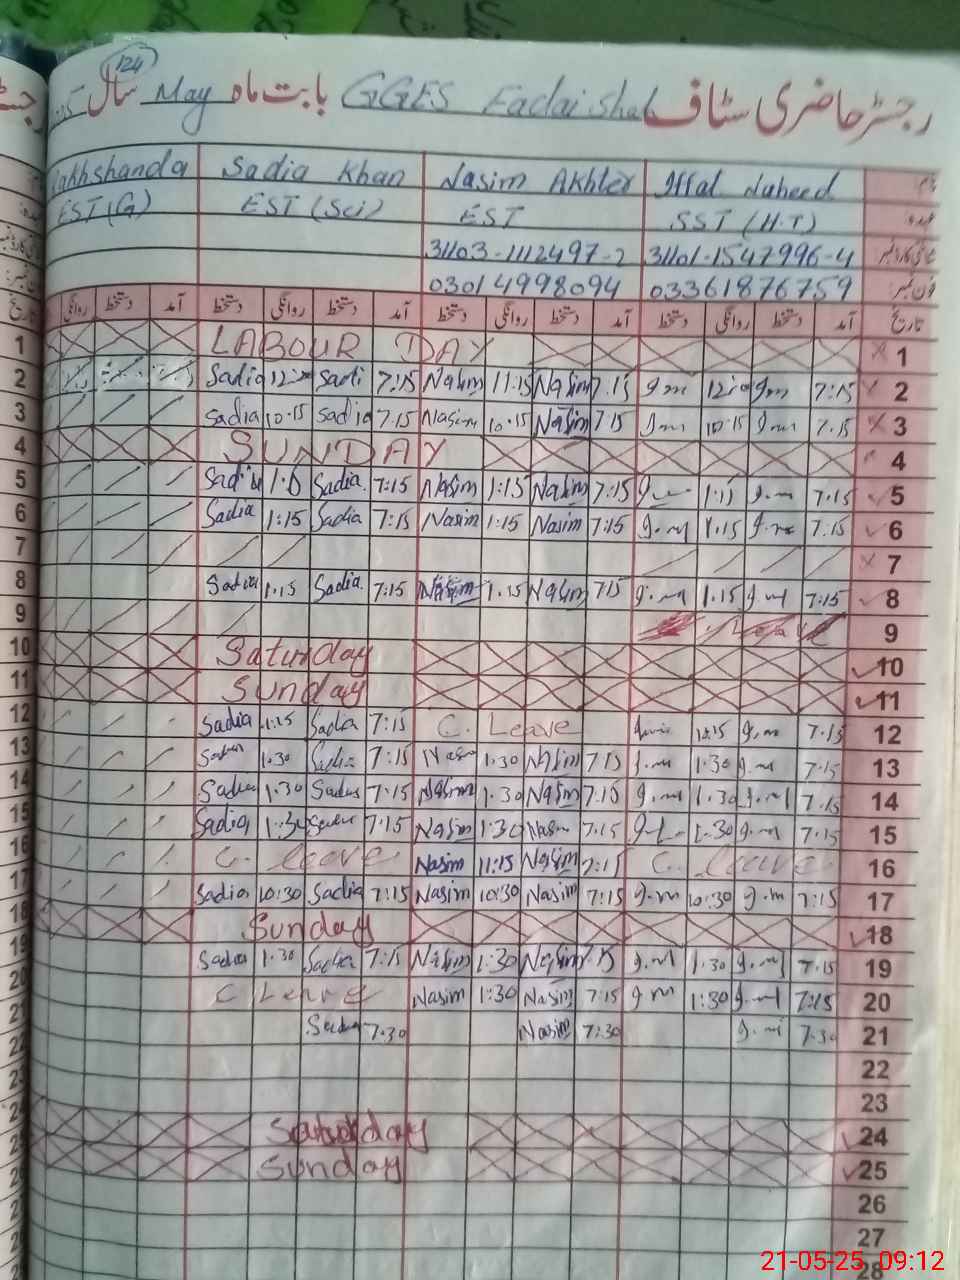 رجسٹر حاضری سٹاف GGES Fadai Shah بابت ماہ May سال
124
نام Iffat Naheed Nasim Akhter Sadia Khan Rakhshanda
عہدہ SST (H.T) EST EST (Sci) EST (G)
31101-1547996-4 31103-1112497-2
فون نمبر: 03361876759 03014998094
تاریخ آمد دستخط روانگی دستخط آمد دستخط روانگی دستخط آمد دستخط روانگی دستخط آمد دستخط روانگی
1 LABOUR DAY
2 7:15 g.m g.m 7.15 Nasim 11:15 Nasim 7:15 Sadi Sadia
3 7.15 10.15 7.15 Nasim 10.15 Nasim 7.15 Sadia 10.15 Sadia
4 SUNDAY
5 7.15 g.m 7:15 Nasim 1:15 Nasim 7:15 Sadia
6 7:15 1.15 g.m 7:15 Nasim 1:15 Nasim 7:15 Sadia 1:15 Sadia
7
8 7:15 g.m 1.15 g.m 7.15 Nasim 1.15 Nasim 7:15 Sadia 1.15 Sadia
9 Leave
10 Saturday
11 Sunday
12 7.15 g.m C. Leave 7:15 Sadia 1:15 Sadia
13 7.15 g.m 1.30 g.m 7.15 Nasim 1.30 7:15 Sadia 1.30
14 7.15 g.m 1.30 g.m 7.15 Nasim 1.30 Nasim 7.15 Sadia 1.30 Sadia
15 7.15 g.m 1.30 7.15 Nasim 1:30 Nasim 7.15 1:30 Sadia
16 C. Leave 7:15 Nasim 11:15 Nasim C. leave
17 7:15 g.m 10:30 g.m 7:15 Nasim 10:30 Nasim 7:15 Sadia 10:30 Sadia
18 Sunday
19 7.15 g.m 1.30 g.m 7.15 Nasim 1:30 Nasim 7:15 Sadia 1.30 Sadia
20 7:15 g.m 1:30 g.m 7:15 Nasim 1:30 Nasim C Leave
21 7.30 g.m 7:30 Nasim 7.30 Sadia
22
23
24 Saturday
25 Sunday
26
27
28
21-05-25 09:12